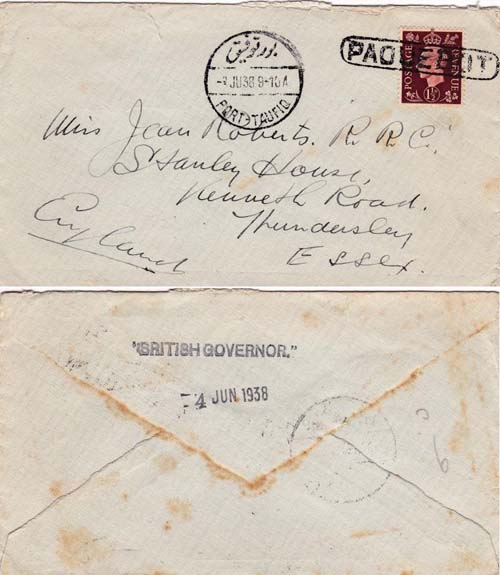 بورتوفيق
JU38 9-10A
PORT-TAUFIQ
PAQUEBOT
POSTAGE REVENUE
1½
Miss Jean Roberts. R.R.C.
Stanley House,
Kenneth Road.
Thundersley
Essex.
England
"BRITISH GOVERNOR."
-4 JUN 1938